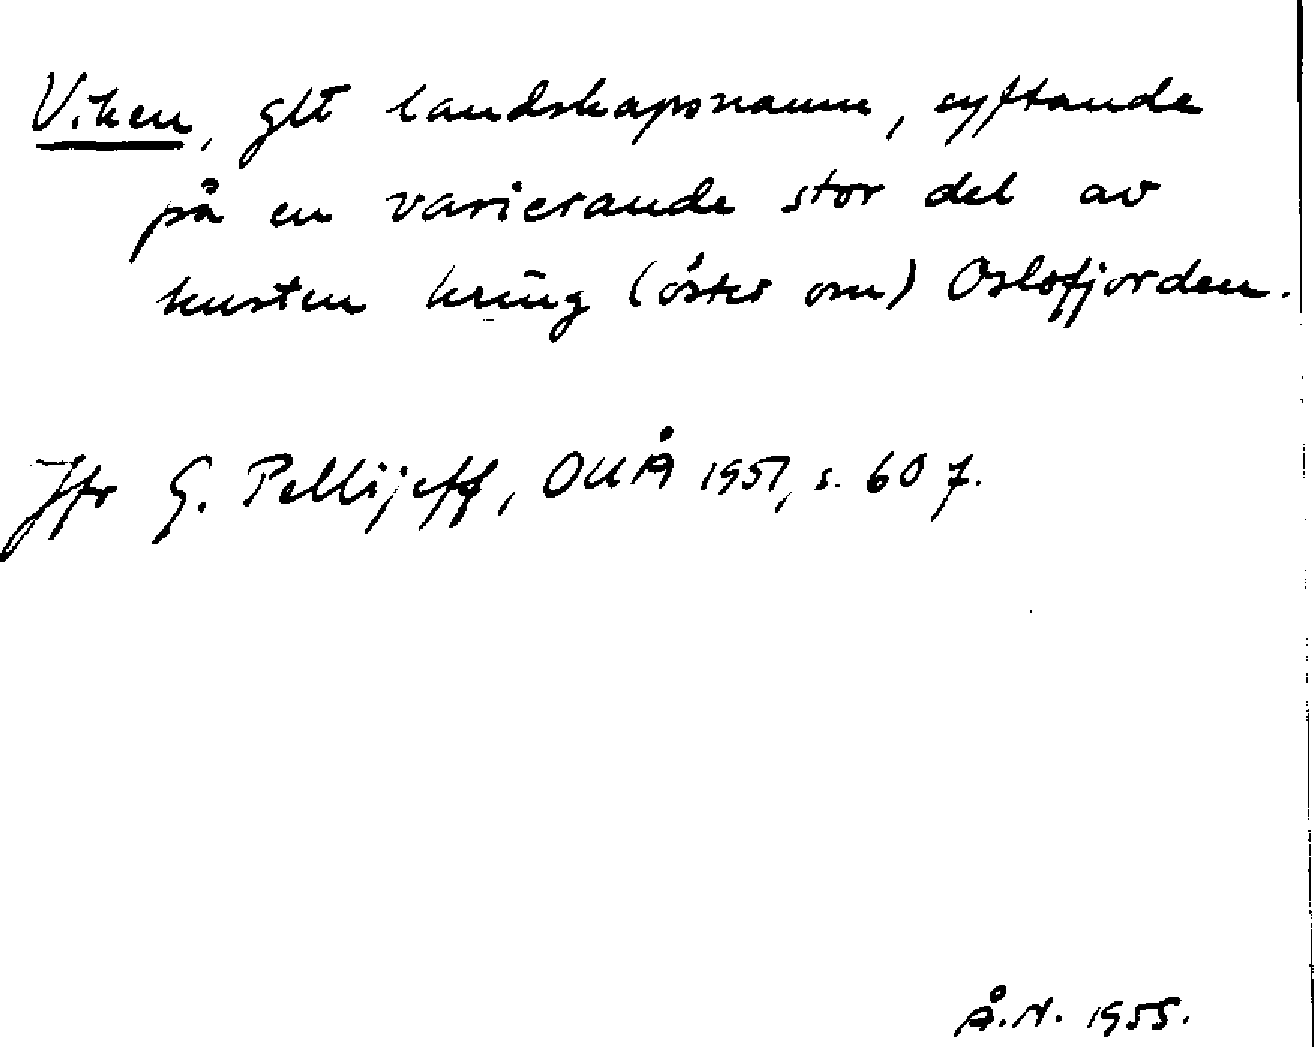 Viken, glt landskapsnamn, syftande
på en varierande stor del av
kusten kring (öster om) Oslofjorden.
Jfr G. Pellijeff, OUÅ 1951, s. 60 f.
Å.N. 1955.